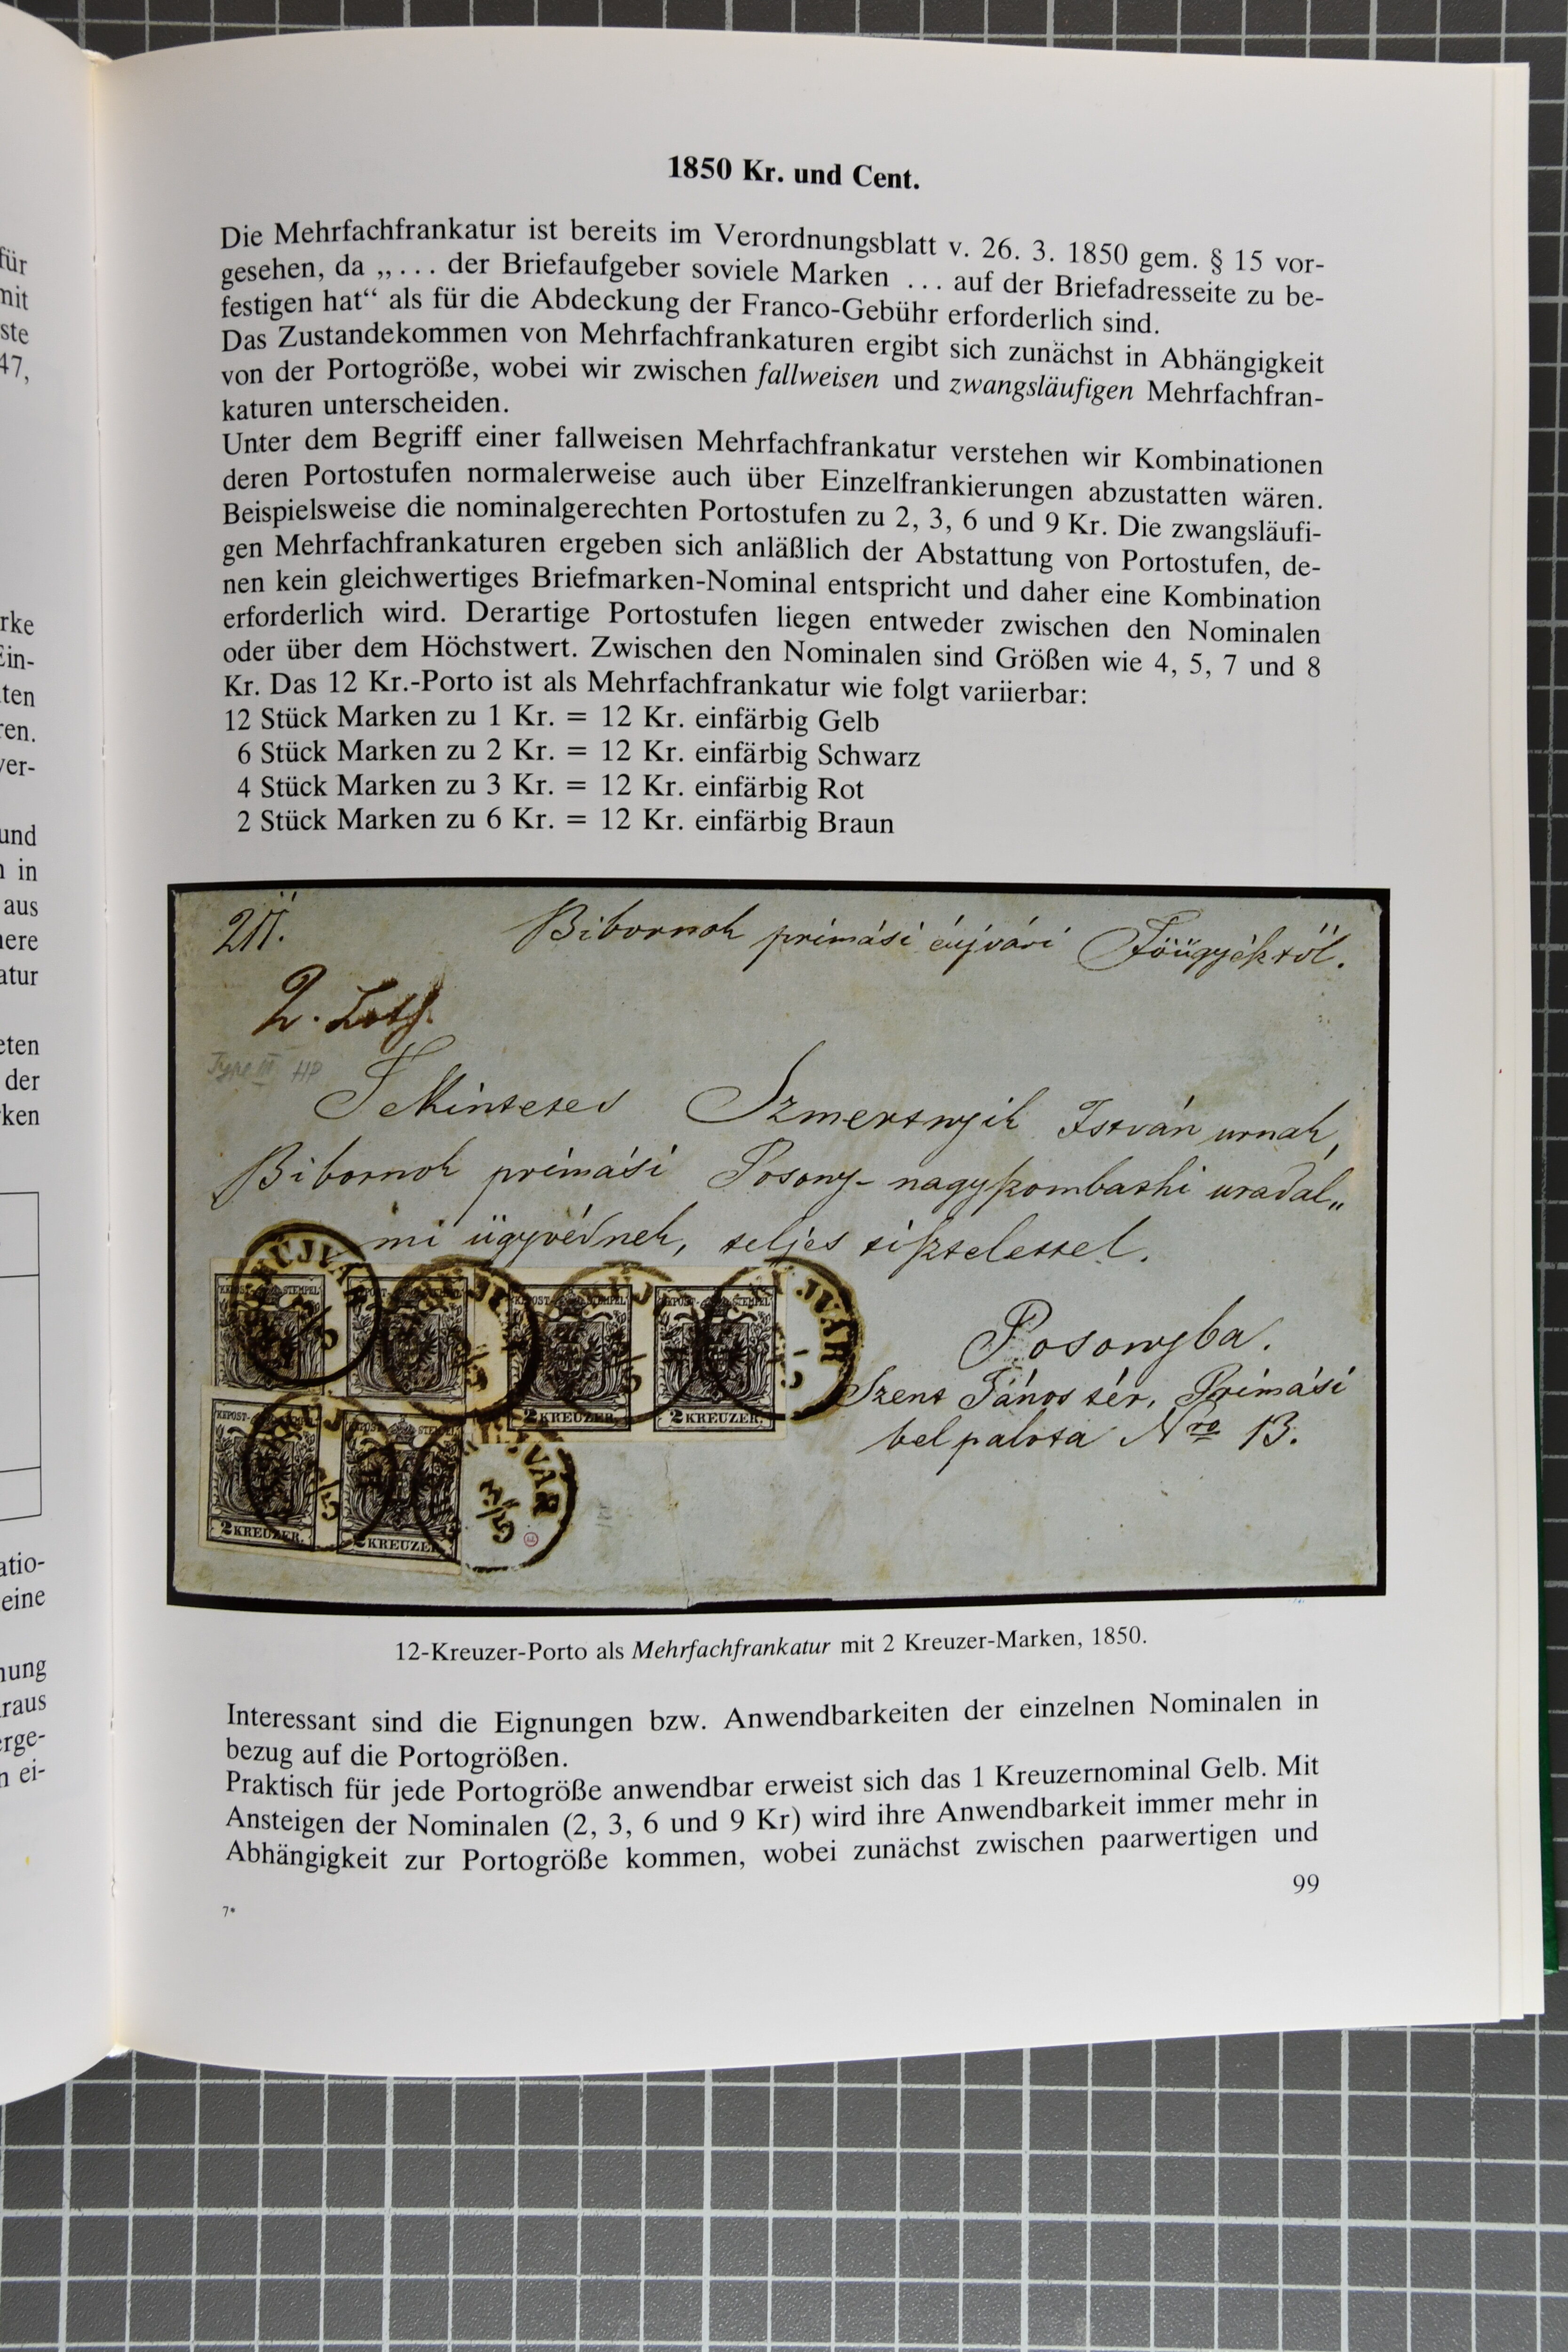 für
mit
ste
47,
rke
Ein-
ten
ren.
ver-
und
n in
aus
here
atur
eten
der
ken
atio-
eine
nung
raus
erge-
n ei-
1850 Kr. und Cent.
Die Mehrfachfrankatur ist bereits im Verordnungsblatt v. 26. 3. 1850 gem. § 15 vor-
gesehen, da „... der Briefaufgeber soviele Marken ... auf der Briefadresseite zu be-
festigen hat“ als für die Abdeckung der Franco-Gebühr erforderlich sind.
Das Zustandekommen von Mehrfachfrankaturen ergibt sich zunächst in Abhängigkeit
von der Portogröße, wobei wir zwischen fallweisen und zwangsläufigen Mehrfachfran-
katuren unterscheiden.
Unter dem Begriff einer fallweisen Mehrfachfrankatur verstehen wir Kombinationen
deren Portostufen normalerweise auch über Einzelfrankierungen abzustatten wären.
Beispielsweise die nominalgerechten Portostufen zu 2, 3, 6 und 9 Kr. Die zwangsläufi-
gen Mehrfachfrankaturen ergeben sich anläßlich der Abstattung von Portostufen, de-
nen kein gleichwertiges Briefmarken-Nominal entspricht und daher eine Kombination
erforderlich wird. Derartige Portostufen liegen entweder zwischen den Nominalen
oder über dem Höchstwert. Zwischen den Nominalen sind Größen wie 4, 5, 7 und 8
Kr. Das 12 Kr.-Porto ist als Mehrfachfrankatur wie folgt variierbar:
12 Stück Marken zu 1 Kr. = 12 Kr. einfärbig Gelb
6 Stück Marken zu 2 Kr. = 12 Kr. einfärbig Schwarz
4 Stück Marken zu 3 Kr. = 12 Kr. einfärbig Rot
2 Stück Marken zu 6 Kr. = 12 Kr. einfärbig Braun
Bibornok primási érújvári Főügyéktől.
2. Loth.
Type III HP
Tekintetes Szmertnyik István urnak,
Bibornok primási Posony-nagyszombathi uradal„
mi ügyvédnek, teljes tisztelettel.
Posonyba.
Szent János tér, Primási
bel palota Nro 13.
KKPOST-STEMPEL
KKPOST-STEMPEL
KKPOST-STEMPEL
KKPOST-STEMPEL
2 KREUZER.
2 KREUZER.
2 KREUZER.
2 KREUZER.
3/5
12-Kreuzer-Porto als Mehrfachfrankatur mit 2 Kreuzer-Marken, 1850.
Interessant sind die Eignungen bzw. Anwendbarkeiten der einzelnen Nominalen in
bezug auf die Portogrößen.
Praktisch für jede Portogröße anwendbar erweist sich das 1 Kreuzernominal Gelb. Mit
Ansteigen der Nominalen (2, 3, 6 und 9 Kr) wird ihre Anwendbarkeit immer mehr in
Abhängigkeit zur Portogröße kommen, wobei zunächst zwischen paarwertigen und
99
7*